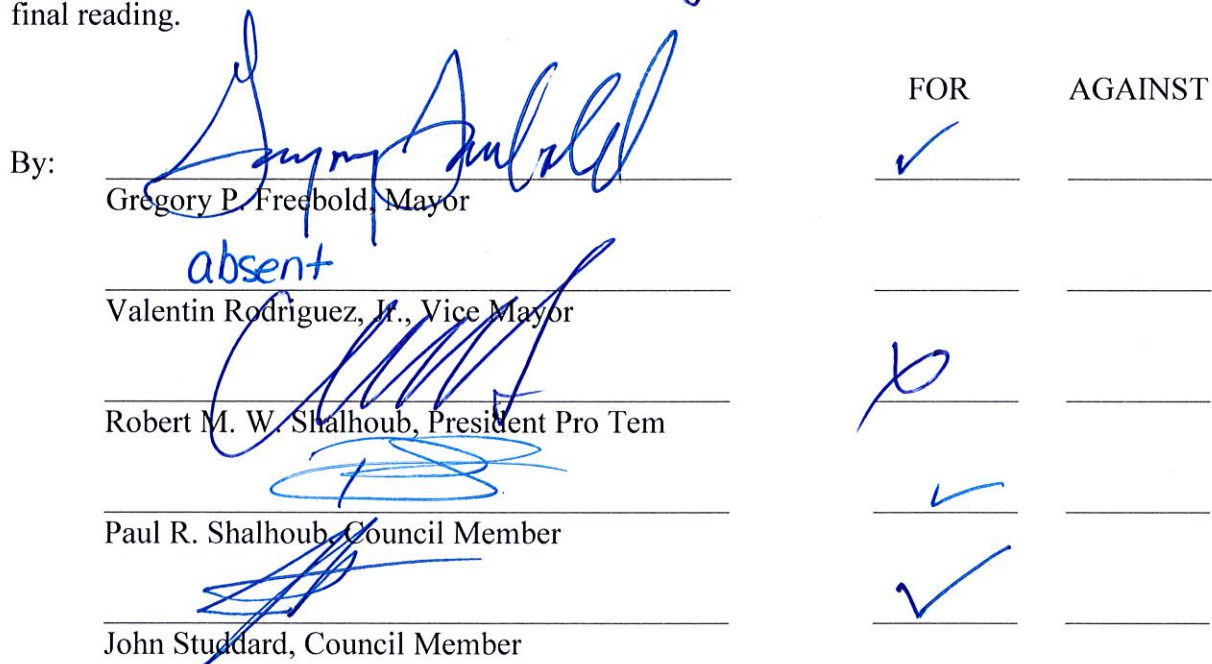 final reading.
FOR AGAINST
By:
Gregory P. Freebold, Mayor
absent
Valentin Rodriguez, Jr., Vice Mayor
Robert M. W. Shalhoub, President Pro Tem
Paul R. Shalhoub, Council Member
John Studdard, Council Member